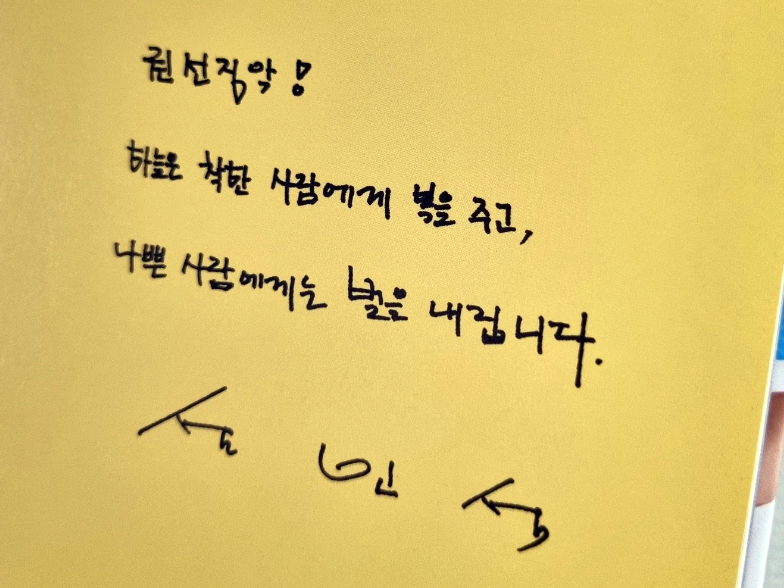 권선징악!
하늘은 착한 사람에게 복을 주고,
나쁜 사람에게는 벌을 내립니다.